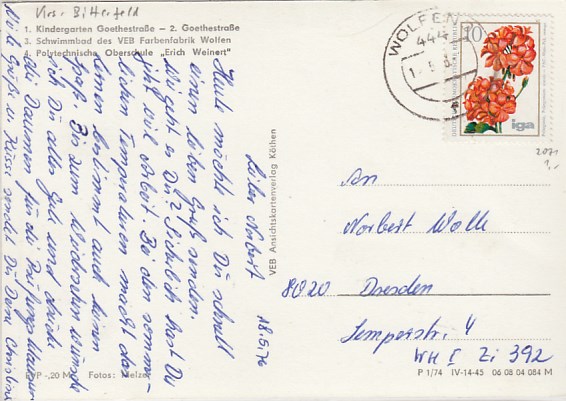 Krs. Bitterfeld
1. Kindergarten Goethestraße – 2. Goethestraße
3. Schwimmbad des VEB Farbenfabrik Wolfen
4. Polytechnische Oberschule „Erich Weinert"
WOLFEN
444
10
iga
2071
1,-
18.5.76
Lieber Norbert
Heute möchte ich Dir schnell
einen lieben Gruß senden.
Wie geht es Dir? Sicherlich hast Du
jetzt viel Arbeit. Bei den sommer-
lichen Temperaturen macht das
Lernen bestimmt auch keinen
Spaß. Bis zum Wiedersehen wünsche
ich Dir alles Gute und drücke
die Daumen für die Prüfungs
Viele Grüße u. Küsse sendet Dir Deine Christine
VEB Ansichtskartenverlag Köthen
An
Norbert Wolk
8020 Dresden
Semperstr. 4
WH I Zi 392
EVP -,20 M Fotos: Melzer
P 1/74 IV-14-45 06 08 04 084 M